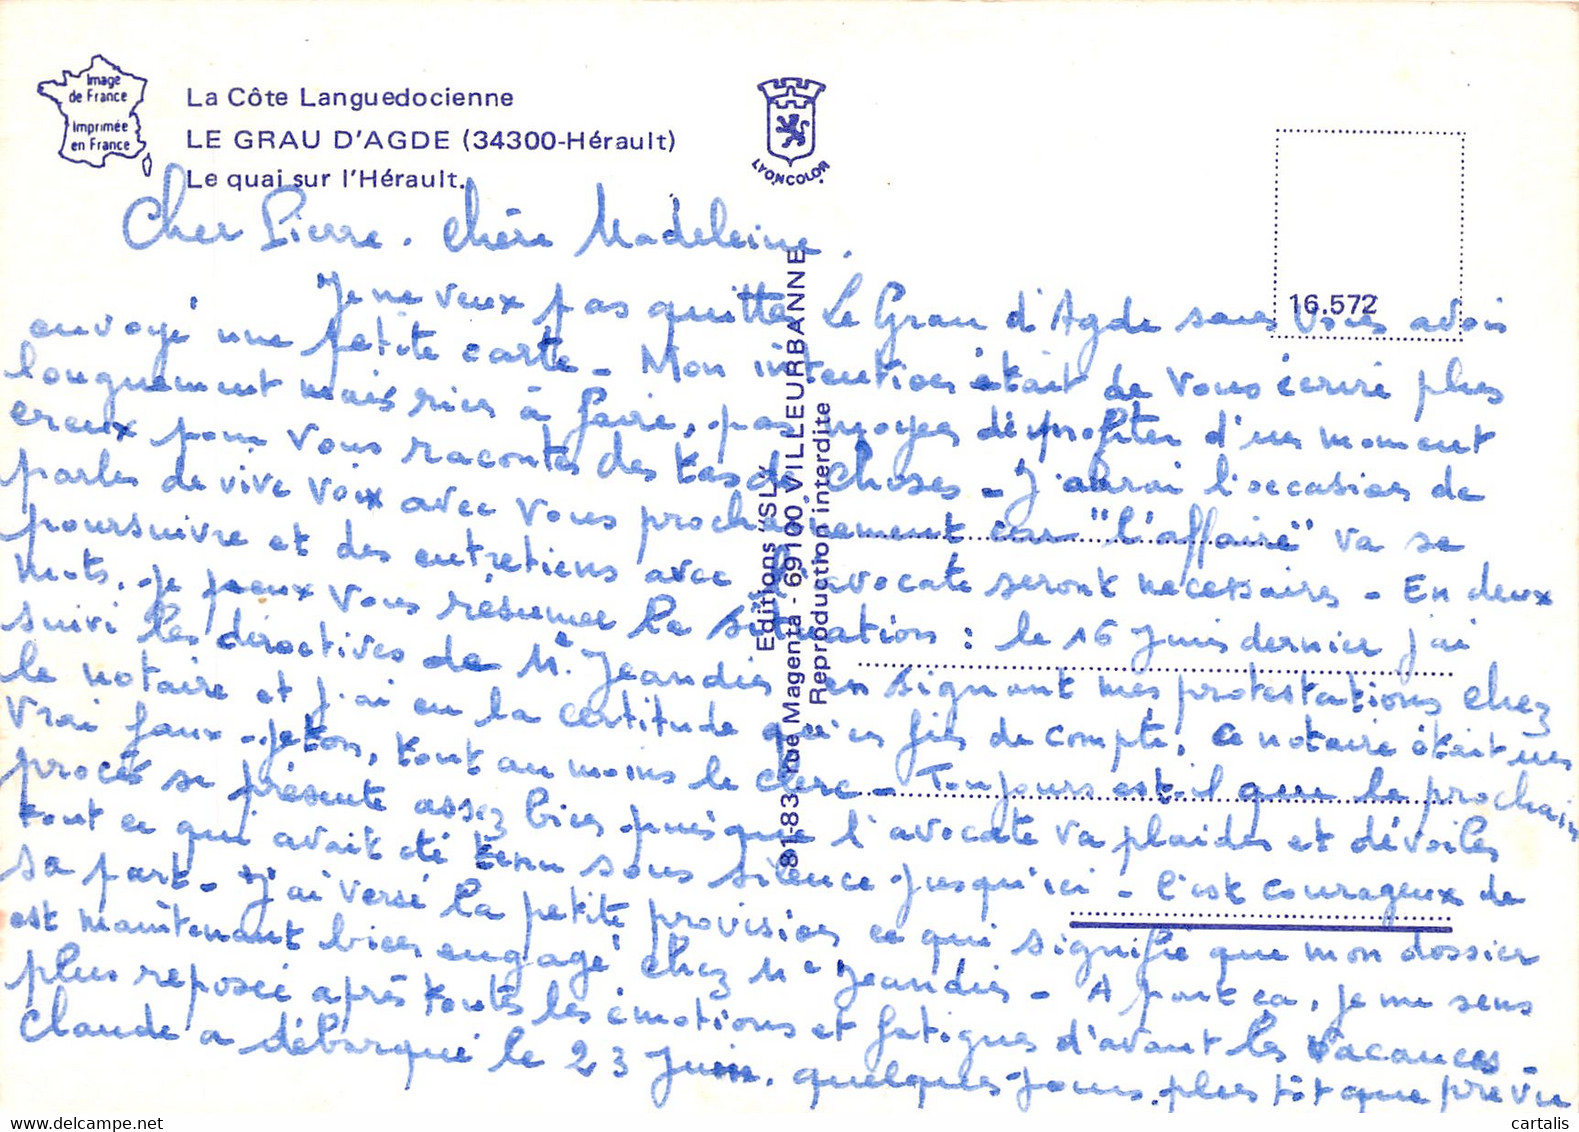 Image
de France
Imprimée
en France
La Côte Languedocienne
LE GRAU D'AGDE (34300-Hérault)
Le quai sur l'Hérault.
LYONCOLOR
16.572
Editions "SL"
81-83, rue Magenta - 69100 VILLEURBANNE
Reproduction interdite
Cher Pierre. Chère Madeleine.
Je ne veux pas quitter Le Grau d'Agde sans vous avoir
envoyé une petite carte - Mon intention était de vous écrire plus
longuement mais rien à faire, pas moyen de profiter d'un moment
creux pour vous raconter des tas de choses - J'aurai l'occasion de
parler de vive voix avec vous prochainement car "l'affaire" va se
poursuivre et des entretiens avec l'avocate seront nécessaires - En deux
mots, je peux vous résumer la situation : le 16 Juin dernier j'ai
suivi les directives de Me Jeandin en signant mes protestations chez
le notaire et j'ai eu la certitude qu'en fin de compte, ce notaire était un
vrai faux-jeton, tout au moins le clerc - Toujours est-il que le prochain
procès se présente assez bien puisque l'avocate va plaider et dévoiler
tout ce qui avait été tenu sous silence jusqu'ici - C'est courageux de
sa part - J'ai versé la petite provision ce qui signifie que mon dossier
est maintenant bien engagé chez Me Jeandin - A part ça, je me sens
plus reposée après toutes les émotions et fatigues d'avant les vacances -
Claude a débarqué le 23 Juin, quelques jours plus tôt que prévu
cartalis